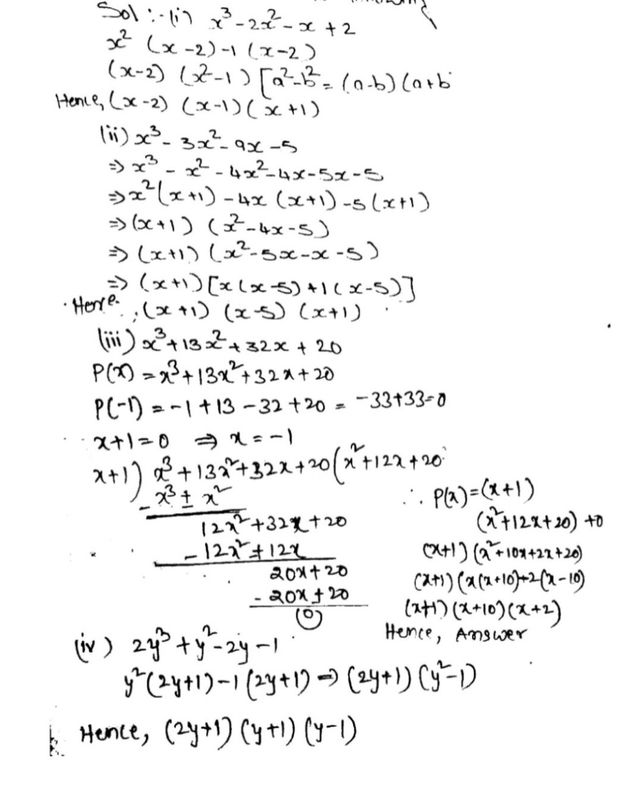 Sol :- (i) x³ - 2x² - x + 2
x² (x - 2) - 1 (x - 2)
(x-2) (x² - 1) [a² - b² = (a-b) (a+b
Hence, (x-2) (x-1) (x+1)
(ii) x³ - 3x² - 9x - 5
⇒ x³ - x² - 4x² - 4x - 5x - 5
⇒ x² (x+1) - 4x (x+1) - 5 (x+1)
⇒ (x+1) (x² - 4x - 5)
⇒ (x+1) (x² - 5x - x - 5)
⇒ (x+1) [x (x-5) + 1 (x-5)]
Hence, (x+1) (x-5) (x+1)
(iii) x³ + 13x² + 32x + 20
P(x) = x³ + 13x² + 32x + 20
P(-1) = -1 + 13 - 32 + 20 = -33 + 33 = 0
x+1 = 0 ⇒ x = -1
x+1) x³ + 13x² + 32x + 20 (x² + 12x + 20
- x³ ± x²
12x² + 32x + 20
- 12x² ± 12x
20x + 20
- 20x ± 20
(0)
∴ P(x) = (x+1)
(x² + 12x + 20) + 0
(x+1) (x² + 10x + 2x + 20)
(x+1) (x(x+10) + 2(x-10)
(x+1) (x+10) (x+2)
Hence, Answer
(iv) 2y³ + y² - 2y - 1
y² (2y+1) - 1 (2y+1) ⇒ (2y+1) (y² - 1)
Hence, (2y+1) (y+1) (y-1)